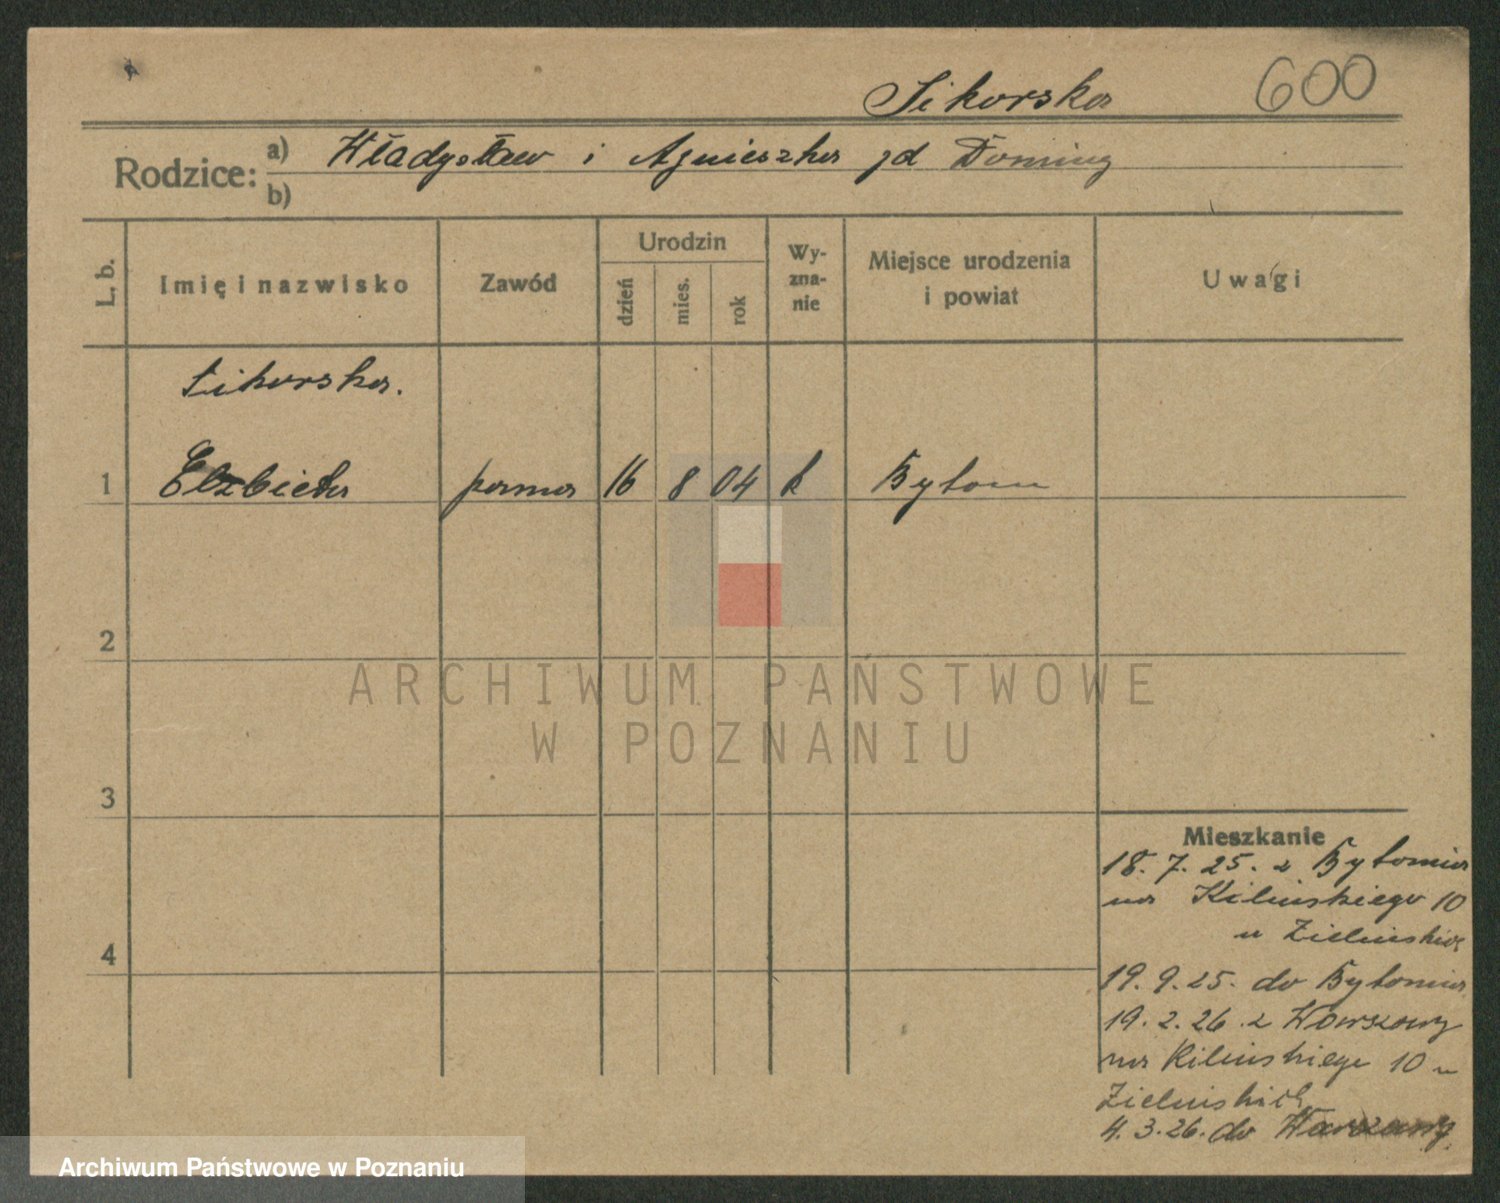 Sikorska 600
Rodzice: a) Władysław i Agnieszka zd Domin
b)
L. b.
Imię i nazwisko
Zawód
Urodzin
dzień
mies.
rok
Wy-
zna-
nie
Miejsce urodzenia
i powiat
Uwagi
Sikorska.
1 Elżbieta panna 16 8 04 k Bytom
2
3
4
Mieszkanie
18. 7. 25. z Bytomia
na Kilińskiego 10
u Zielińskich
19. 9. 25. do Bytomia
19. 2. 26. z Warszawy
na Kilińskiego 10 u
Zielińskich
4. 3. 26. do Warszawy.
ARCHIWUM PAŃSTWOWE
W POZNANIU
Archiwum Państwowe w Poznaniu